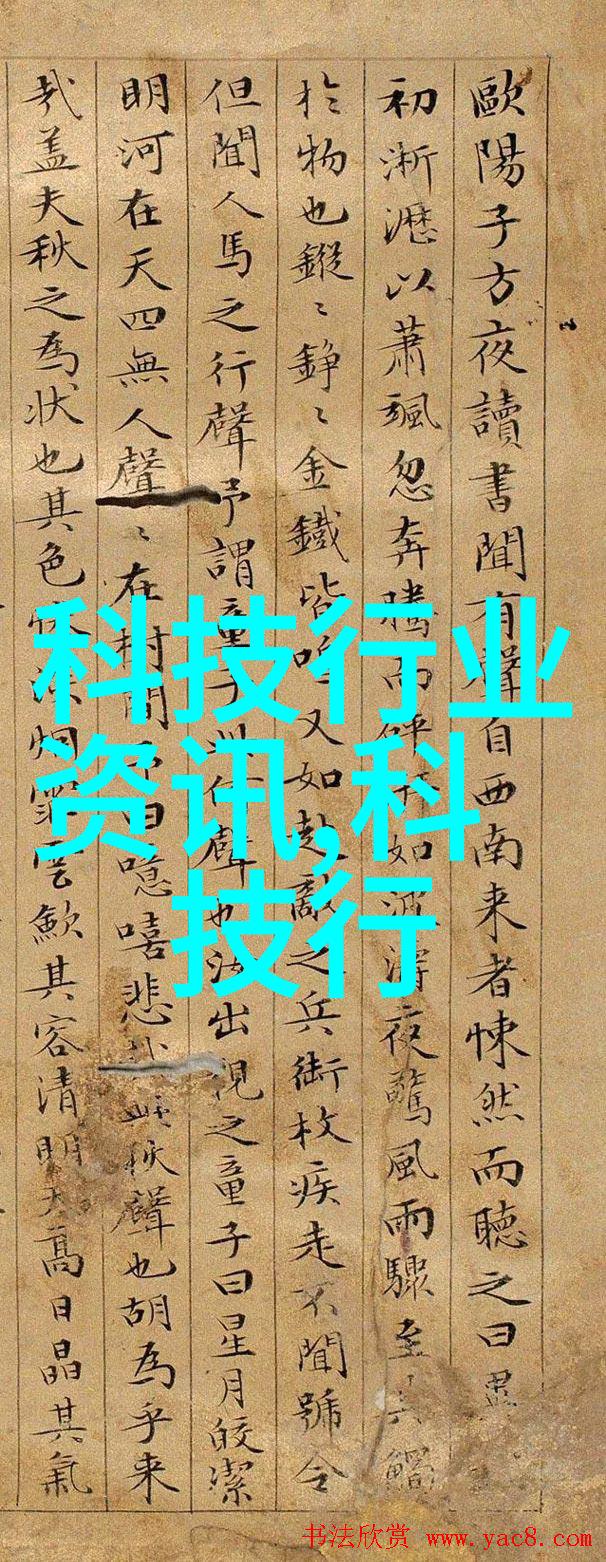 歐陽子方夜讀書聞有聲自西南来者悚然而聴之曰異
初淅瀝以蕭颯忽奔騰而砰湃如波濤夜驚風雨驟至其觸
扵物也鏦〻錚〻金鐡皆鳴又如赴敵之兵銜枚疾走不聞號令
但聞人馬之行聲予謂童子此何聲也汝出視之童子曰星月皎潔
明河在天四無人聲〻在樹間予曰噫嘻悲哉此秋聲也胡為乎来
哉盖夫秋之為状也其色惨淡烟霏雲歛其容清明天髙日晶其氣
科技行业
资讯,科
技行
书法欣赏 www.yac8.com